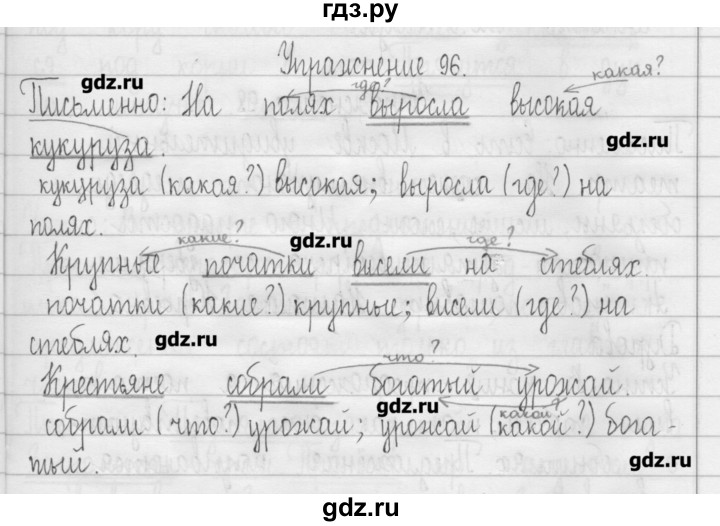 гдз.ру
Упражнение 96.
gdz.ru
где?
какая?
Письменно: На полях выросла высокая
gdz.ru
кукуруза.
кукуруза (какая?) высокая; выросла (где?) на
полях.
gdz.ru
какие?
где?
Крупные початки висели на стеблях.
початки (какие?) крупные; висели (где?) на
стеблях.
gdz.ru
что?
Крестьяне собрали богатый урожай.
gdz.ru
какой?
собрали (что?) урожай; урожай (какой?) бога-
тый.
gdz.ru
gdz.ru